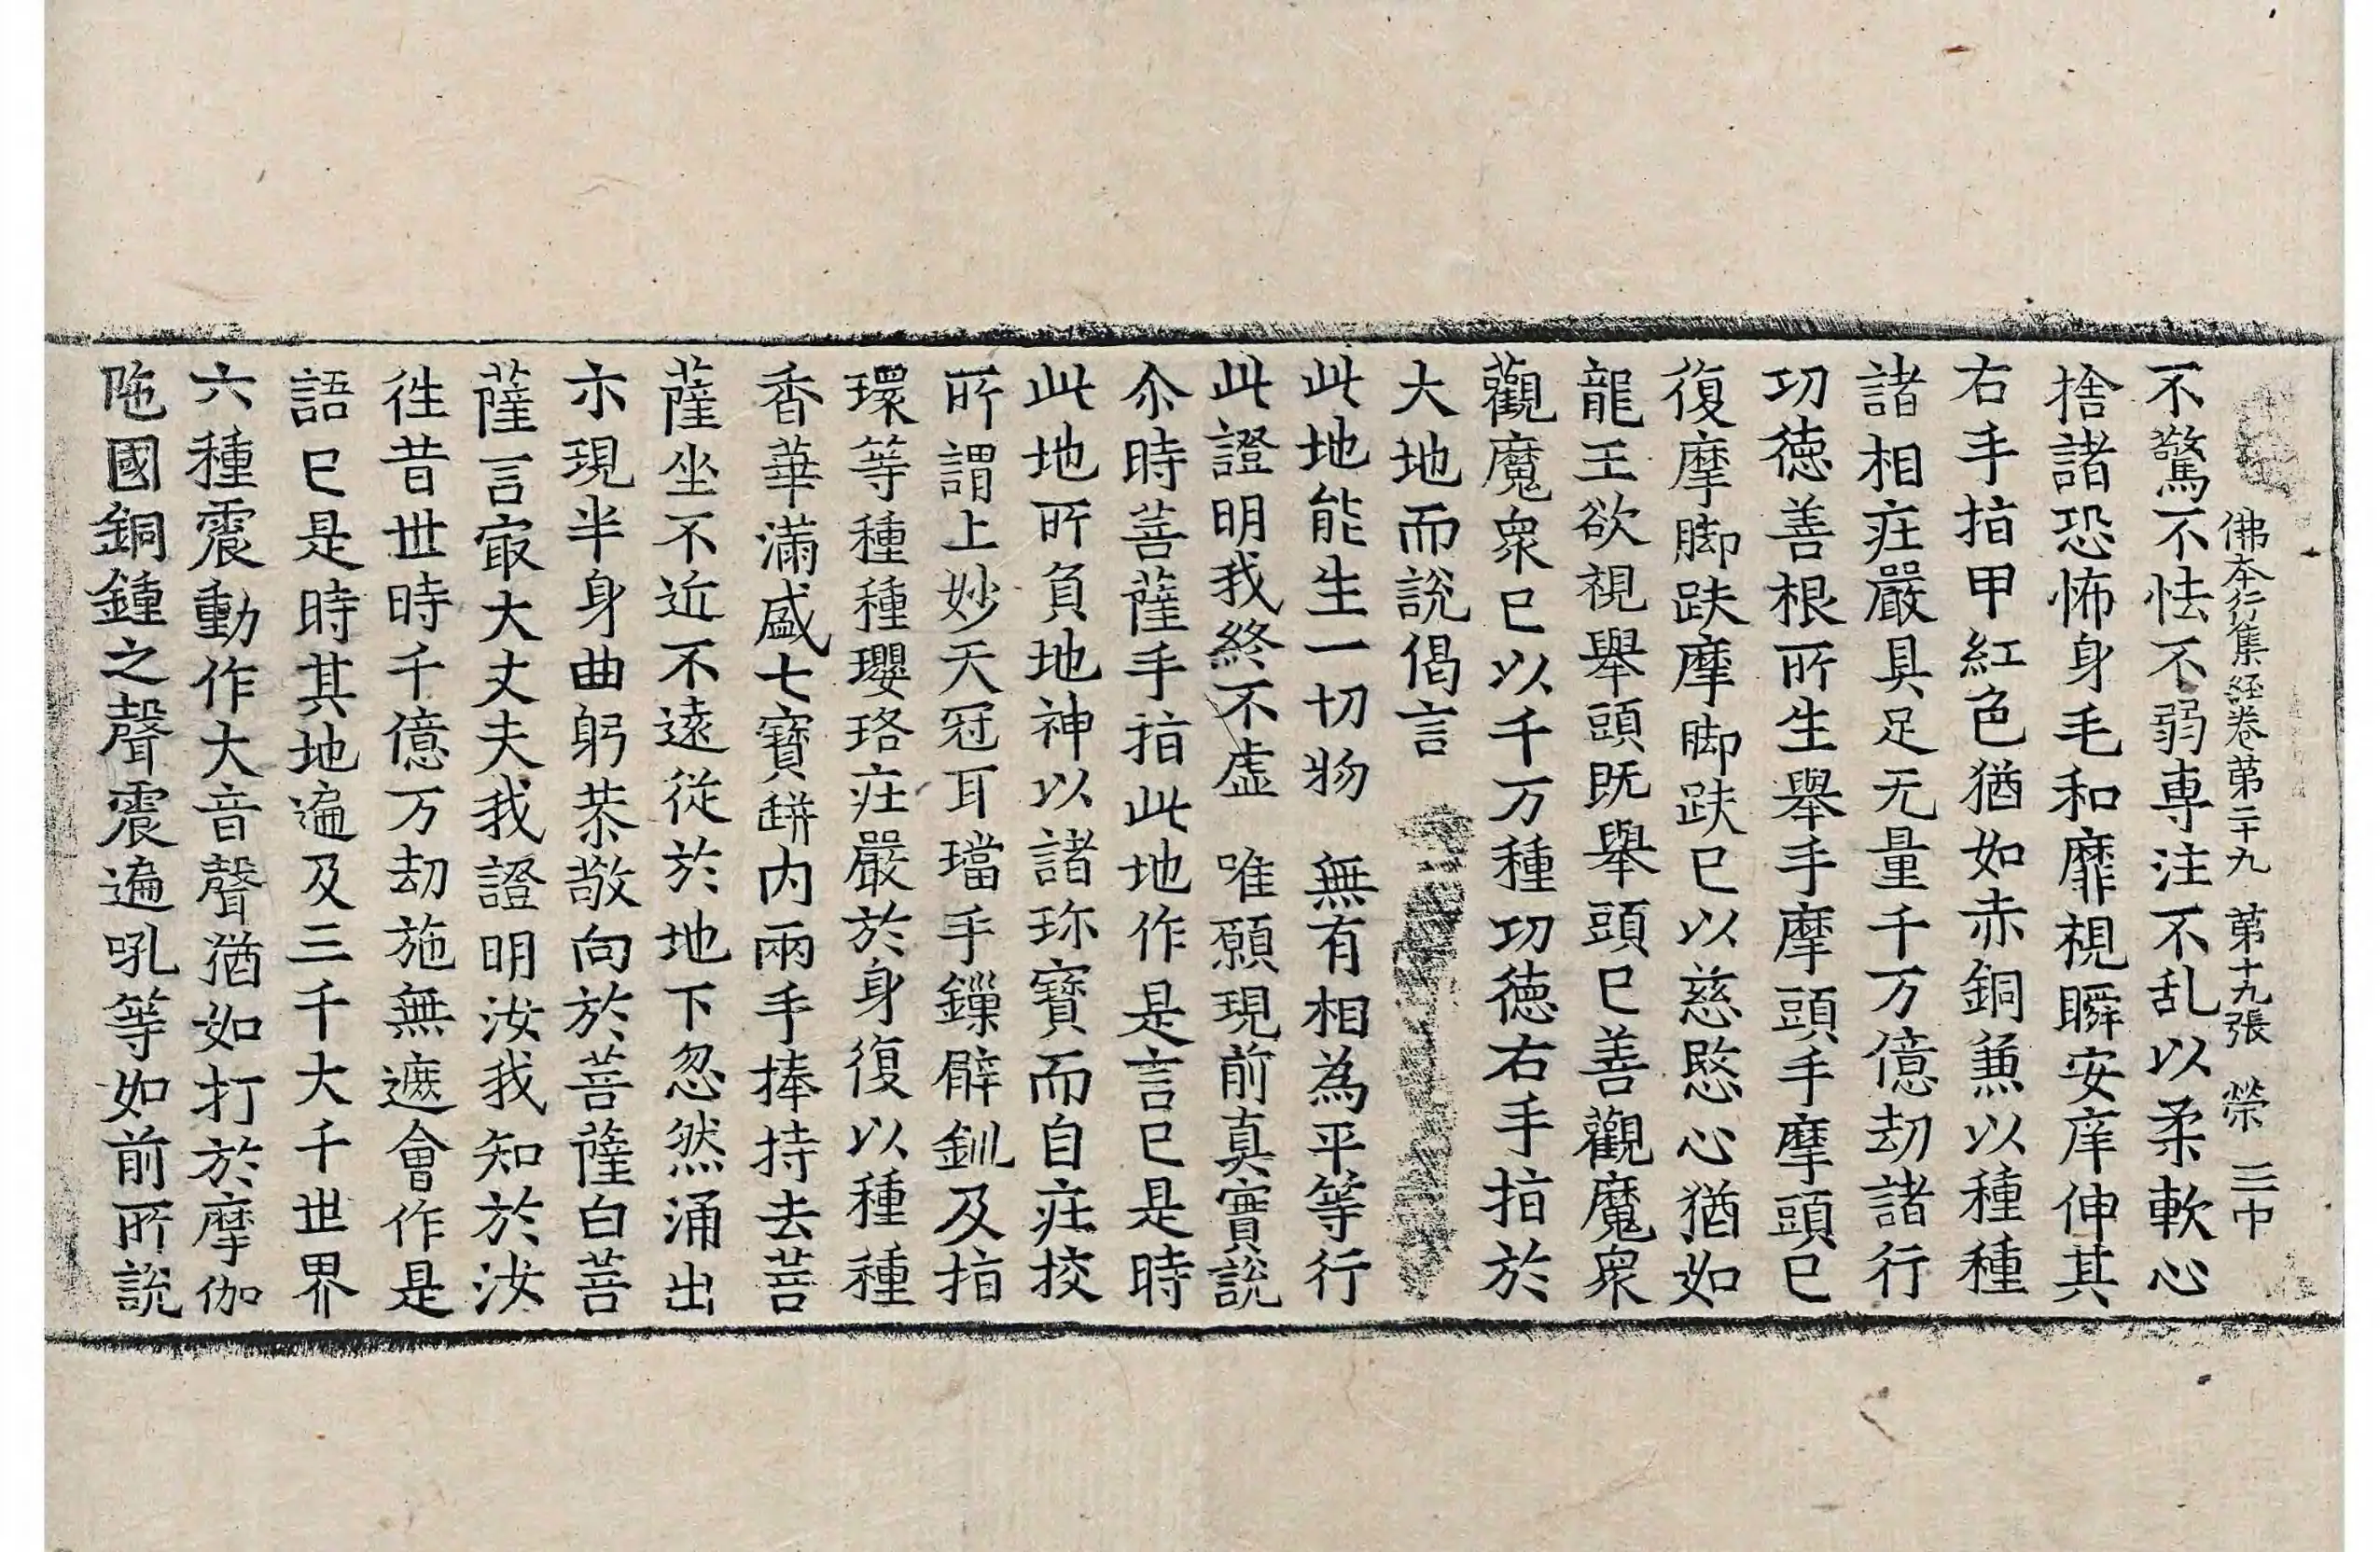 佛本行集経卷第二十九 第十九張 榮 三巾
不驚不怯不弱専注不乱以柔軟心
捨諸恐怖身毛和靡視瞬安庠伸其
右手指甲紅色猶如赤銅兼以種種
諸相莊嚴具足无量千万億劫諸行
功徳善根所生舉手摩頭手摩頭巳
復摩脚趺摩脚趺巳以慈愍心猶如
龍王欲視舉頭既舉頭巳善觀魔衆
觀魔衆巳以千万種功徳右手指於
大地而說偈言
此地能生一切物　無有相為平等行
此證明我終不虛　唯願現前真實說
尒時菩薩手指此地作是言巳是時
此地所負地神以諸珎寶而自莊挍
所謂上妙天冠耳璫手鏁臂釧及指
環等種種瓔珞莊嚴於身復以種種
香華滿盛七寶缾内兩手捧持去菩
薩坐不近不遠從於地下忽然涌出
示現半身曲躬恭敬向於菩薩白菩
薩言㝡大丈夫我證明汝我知於汝
徃昔世時千億万劫施無遮會作是
語巳是時其地遍及三千大千世界
六種震動作大音聲猶如打於摩伽
陁國銅鍾之聲震遍吼等如前所說